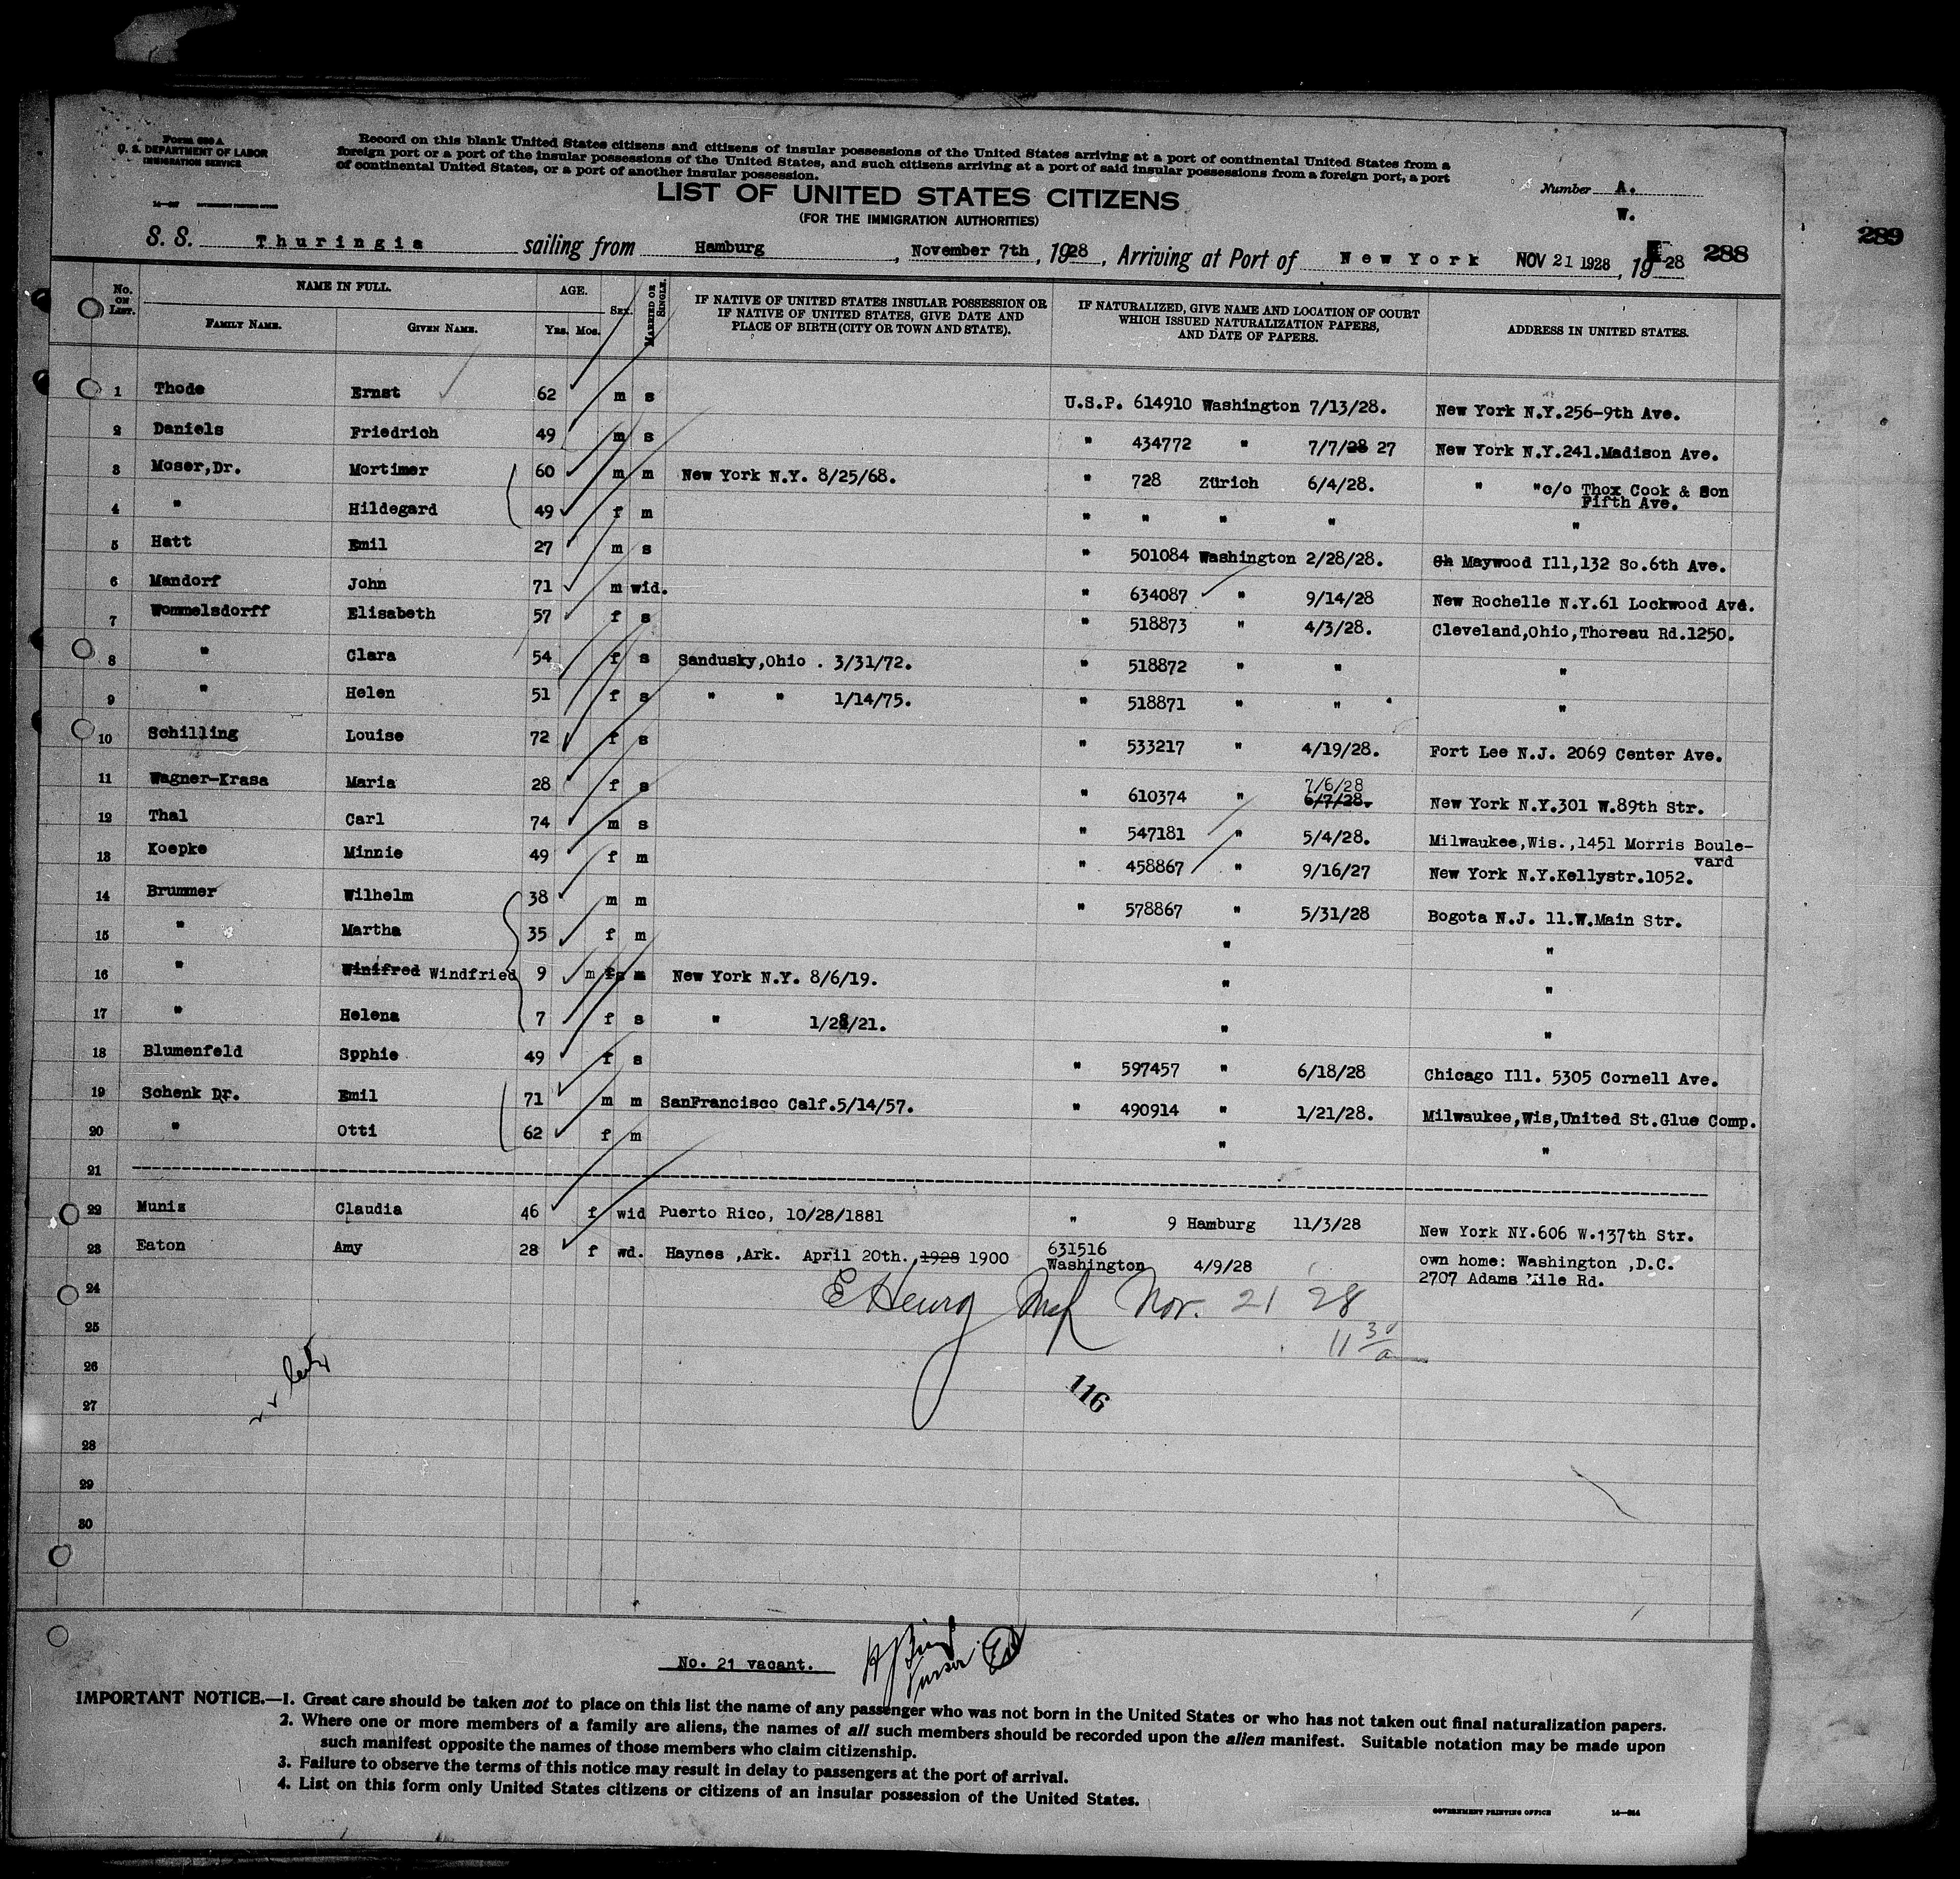 Form 630 A
U. S. DEPARTMENT OF LABOR
IMMIGRATION SERVICE
GOVERNMENT PRINTING OFFICE
Record on this blank United States citizens and citizens of insular possessions of the United States arriving at a port of continental United States from a
foreign port or a port of the insular possessions of the United States, and such citizens arriving at a port of said insular possessions from a foreign port, a port
of continental United States, or a port of another insular possession.
LIST OF UNITED STATES CITIZENS
(FOR THE IMMIGRATION AUTHORITIES)
Number A.
W.
289
S. S. Thuringia sailing from Hamburg, November 7th, 1928, Arriving at Port of New York NOV 21 1928, 1928 288
No. ON LIST. NAME IN FULL. FAMILY NAME. GIVEN NAME. AGE. YRS. MOS. SEX. MARRIED OR SINGLE.
IF NATIVE OF UNITED STATES INSULAR POSSESSION OR
IF NATIVE OF UNITED STATES, GIVE DATE AND
PLACE OF BIRTH (CITY OR TOWN AND STATE).
IF NATURALIZED, GIVE NAME AND LOCATION OF COURT
WHICH ISSUED NATURALIZATION PAPERS,
AND DATE OF PAPERS.
ADDRESS IN UNITED STATES.
1 Thode Ernst 62 m s U.S.P. 614910 Washington 7/13/28. New York N.Y.256-9th Ave.
2 Daniels Friedrich 49 m s " 434772 " 7/7/28 27 New York N.Y.241.Madison Ave.
3 Moser,Dr. Mortimer 60 m m New York N.Y. 8/25/68. " 728 Zürich 6/4/28. " "c/o Thox Cook & Son
Fifth Ave.
4 " Hildegard 49 f m " " " " "
5 Hatt Emil 27 m s " 501084 Washington 2/28/28. Ch Maywood Ill,132 So.6th Ave.
6 Mandorf John 71 m wid. " 634087 " 9/14/28 New Rochelle N.Y.61 Lockwood Ave.
7 Wommelsdorff Elisabeth 57 f s " 518873 " 4/3/28. Cleveland,Ohio,Thoreau Rd.1250.
8 " Clara 54 f s Sandusky,Ohio . 3/31/72. " 518872 " " "
9 " Helen 51 f s " " 1/14/75. " 518871 " " "
10 Schilling Louise 72 f s " 533217 " 4/19/28. Fort Lee N.J. 2069 Center Ave.
11 Wagner-Krasa Maria 28 f s " 610374 " 7/6/28 6/7/28. New York N.Y.301 W.89th Str.
12 Thal Carl 74 m s " 547181 " 5/4/28. Milwaukee,Wis.,1451 Morris Boule-
vard
13 Koepke Minnie 49 f m " 458867 " 9/16/27 New York N.Y.Kellystr.1052.
14 Brummer Wilhelm 38 m m " 578867 " 5/31/28 Bogota N.J. 11.W.Main Str.
15 " Martha 35 f m " "
16 " Winifred Windfried 9 m f s m New York N.Y. 8/6/19. " "
17 " Helena 7 f s " 1/28/21. " "
18 Blumenfeld Spphie 49 f s " 597457 " 6/18/28 Chicago Ill. 5305 Cornell Ave.
19 Schenk Dr. Emil 71 m m SanFrancisco Calf.5/14/57. " 490914 " 1/21/28. Milwaukee,Wis,United St.Glue Comp.
20 " Otti 62 f m " "
21
22 Munis Claudia 46 f wid Puerto Rico, 10/28/1881 " 9 Hamburg 11/3/28 New York NY.606 W.137th Str.
23 Eaton Amy 28 f wd. Haynes ,Ark. April 20th.,1928 1900 631516
Washington 4/9/28 own home: Washington ,D.C.
2707 Adams Mile Rd.
24
E Henry Insp Nov. 21 28
25
11 30 a
26
116
27
28
29
30
No. 21 vacant.
Purser
IMPORTANT NOTICE.—1. Great care should be taken not to place on this list the name of any passenger who was not born in the United States or who has not taken out final naturalization papers.
2. Where one or more members of a family are aliens, the names of all such members should be recorded upon the alien manifest. Suitable notation may be made upon
such manifest opposite the names of those members who claim citizenship.
3. Failure to observe the terms of this notice may result in delay to passengers at the port of arrival.
4. List on this form only United States citizens or citizens of an insular possession of the United States.
GOVERNMENT PRINTING OFFICE